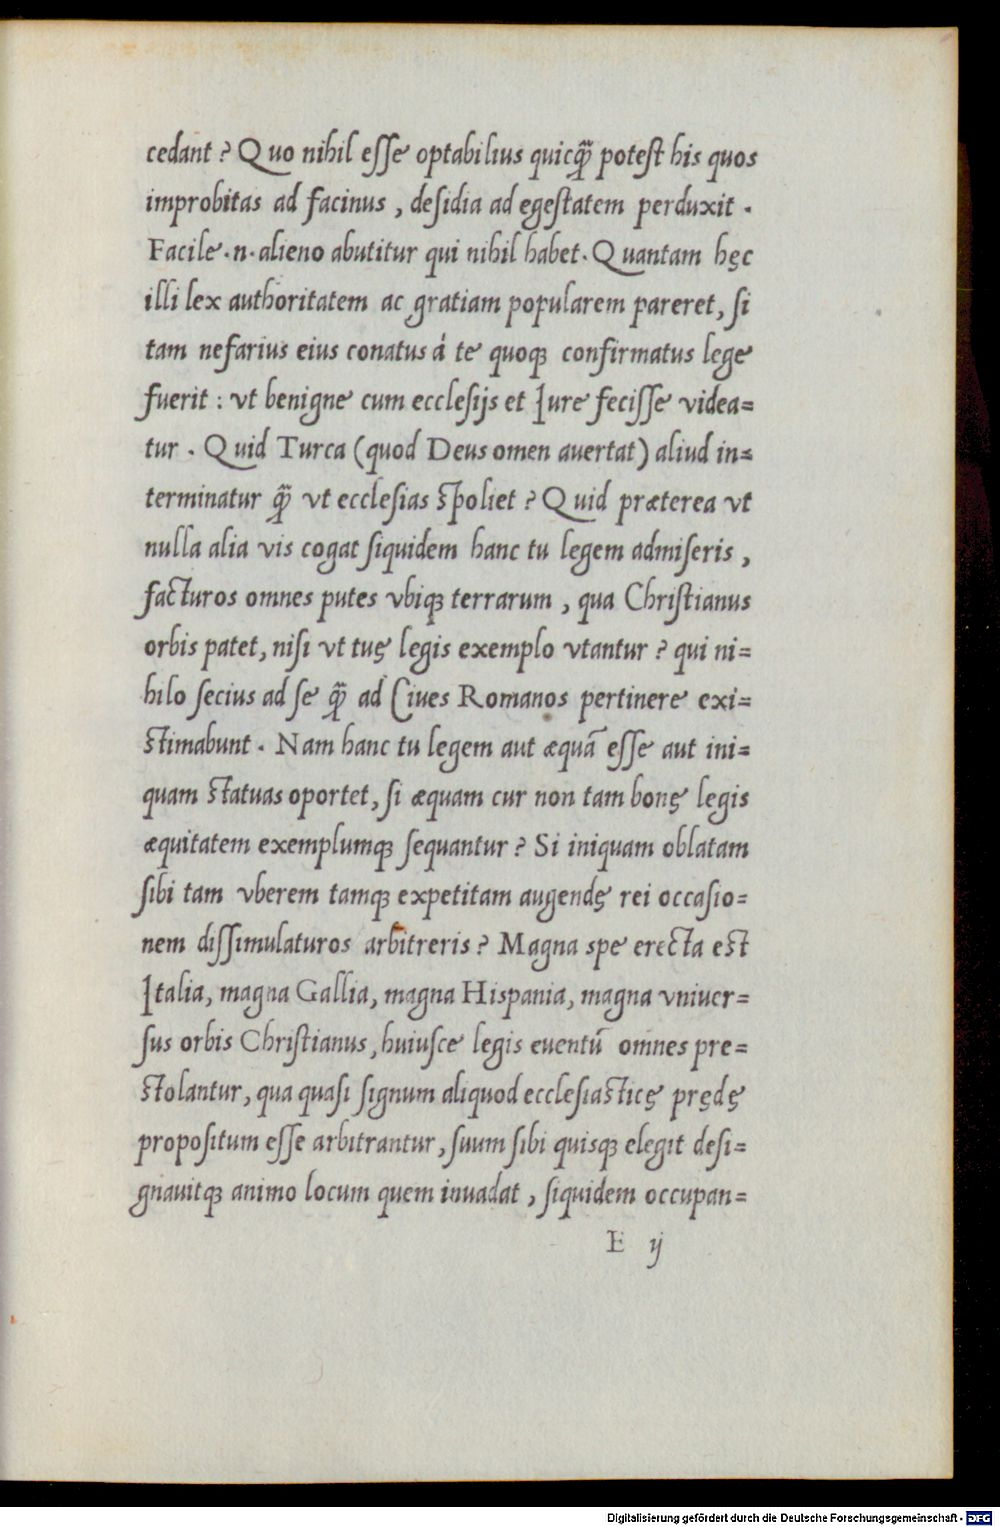 cedant ? Quo nihil eſſe optabilius quicq̃ poteſt his quos
improbitas ad facinus , deſidia ad egeſtatem perduxit .
Facile . n . alieno abutitur qui nihil habet . Quantam hęc
illi lex authoritatem ac gratiam popularem pareret, ſi
tam nefarius eius conatus á te quoqꝫ confirmatus lege
fuerit : vt benigne cum eccleſijs et Iure feciſſe videa=
tur . Quid Turca (quod Deus omen auertat) aliud in=
terminatur q̃ vt eccleſias ſpoliet ? Quid præterea vt
nulla alia vis cogat ſiquidem hanc tu legem admiſeris ,
facturos omnes putes vbiqꝫ terrarum , qua Chriſtianus
orbis patet, niſi vt tuę legis exemplo vtantur ? qui ni=
hilo ſecius ad ſe q̃ ad Ciues Romanos pertinere exi=
ſtimabunt . Nam hanc tu legem aut æquā eſſe aut ini=
quam ſtatuas oportet, ſi æquam cur non tam bonę legis
æquitatem exemplumqꝫ ſequantur ? Si iniquam oblatam
ſibi tam vberem tamqꝫ expetitam augendę rei occaſio=
nem diſſimulaturos arbitreris ? Magna spe erecta eſt
Italia, magna Gallia, magna Hispania, magna vniuer=
ſus orbis Chriſtianus, huiuſce legis euentū omnes pre=
ſtolantur, qua quaſi ſignum aliquod eccleſiaſticę prędę
propoſitum eſſe arbitrantur, ſuum ſibi quisqꝫ elegit deſi=
gnauitqꝫ animo locum quem inuadat , ſiquidem occupan=
E ij
Digitalisierung gefördert durch die Deutsche Forschungsgemeinschaft - DFG